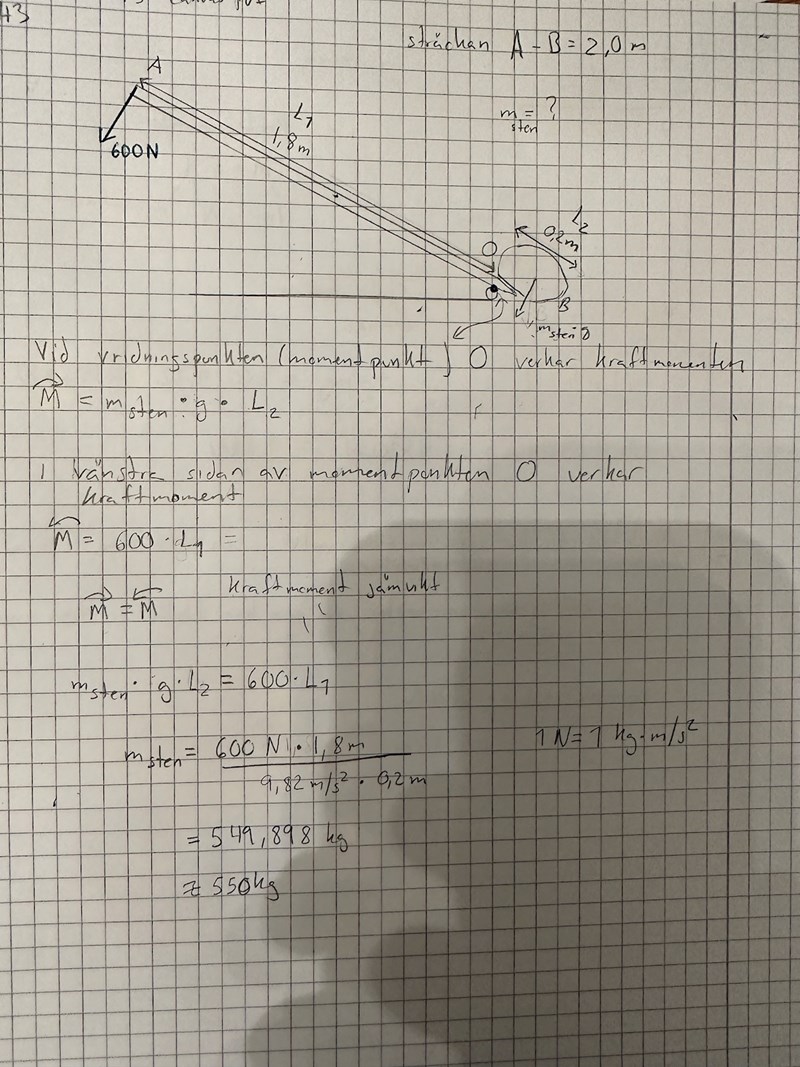 43
sträckan A - B = 2,0 m
A
L₁
1,8m
m_sten = ?
600N
L₂
0,2m
O
B
m_sten·g
Vid vridningspunkten (momentpunkt) O verkar kraftmomenten
M = m_sten · g · L₂
I vänstra sidan av momentpunkten O verkar
kraftmoment
M = 600 · L₁ =
M = M kraftmoment jämvikt
m_sten · g · L₂ = 600 · L₁
m_sten = 600 N · 1,8m
9,82 m/s² · 0,2 m
1 N = 1 kg·m/s²
= 549,898 kg
≈ 550kg